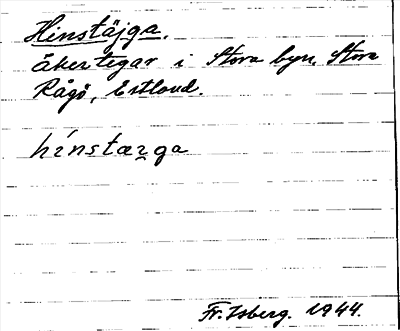 Hinstäjga.
åkertegar i Stora byn, Stora
Rågö, Estland.
hinstæꭢga
Fr. Isberg. 1944.